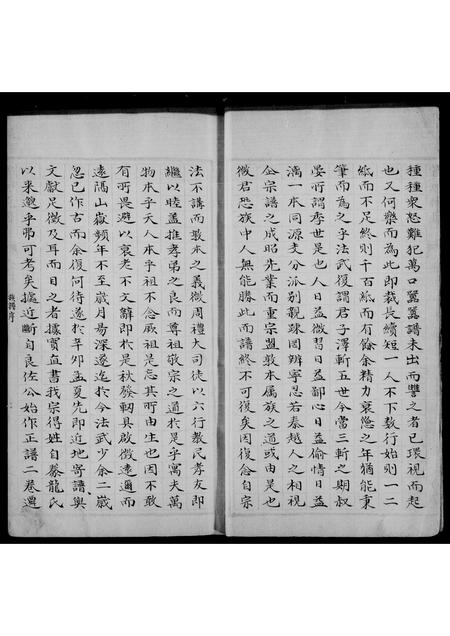 種種衆怒難犯萬口嚚嚚譜未出而讐之者已環視而起
也又何樂而為此即裁長續短一人不下數行始則一二
紙而不足終則千百紙而有餘余精力衰憊之年猶能秉
筆而為之乎法武復謂君子澤斬五世今當三斬之期叔
晏所謂季世是也人日益微習日益鄙心日益偷情日益
漓一本同源支分派別親疎罔辨寧忍若秦越人之相視
仝宗譜之成昭先業而重宗盟敦本属族之道或由是也
微君恐族中人無能勝此而譜終不可復矣因復念自宗
法不講而敦本之義微周禮大司徒以六行教民孝友即
繼以睦盖推孝弟之良而尊祖敬宗之道於是乎寓夫萬
物本乎天人本乎祖不念厥祖是忘其所由生也因不敢
有所畏避以衰老不文辭即於是秋發軔具啟徵遠邇而
遠隔山嶽頻年不至歲月易深遂迄於今法武少余二歲
忽已作古而余復何待遂於辛夘孟夏先即近地哥譜與
文獻足徵及耳而目之者據實直書我宗得姓自豢龍氏
以来邈乎弗可考矣攄近斷自良佐公始作正譜二卷遷